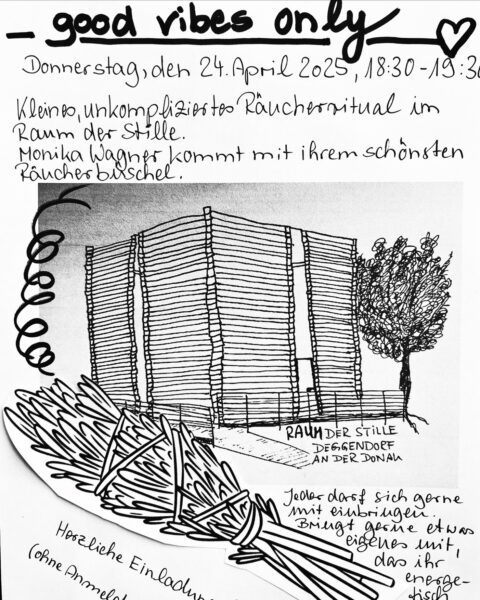 good vibes only
Donnerstag, den 24. April 2025, 18:30-19:30
Kleines, unkompliziertes Räucherritual im
Raum der Stille.
Monika Wagner kommt mit ihrem schönsten
Räucherbüschel.
RAUM DER STILLE
DEGGENDORF
AN DER DONAU
Jeder darf sich gerne
mit einbringen.
Bringt gerne etwas
eigenes mit,
das ihr
energe-
tisch
Herzliche Einladung
(ohne